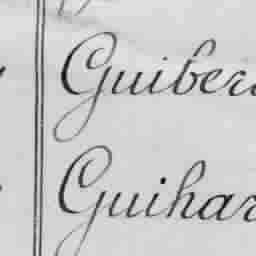 Guiber
Guihar